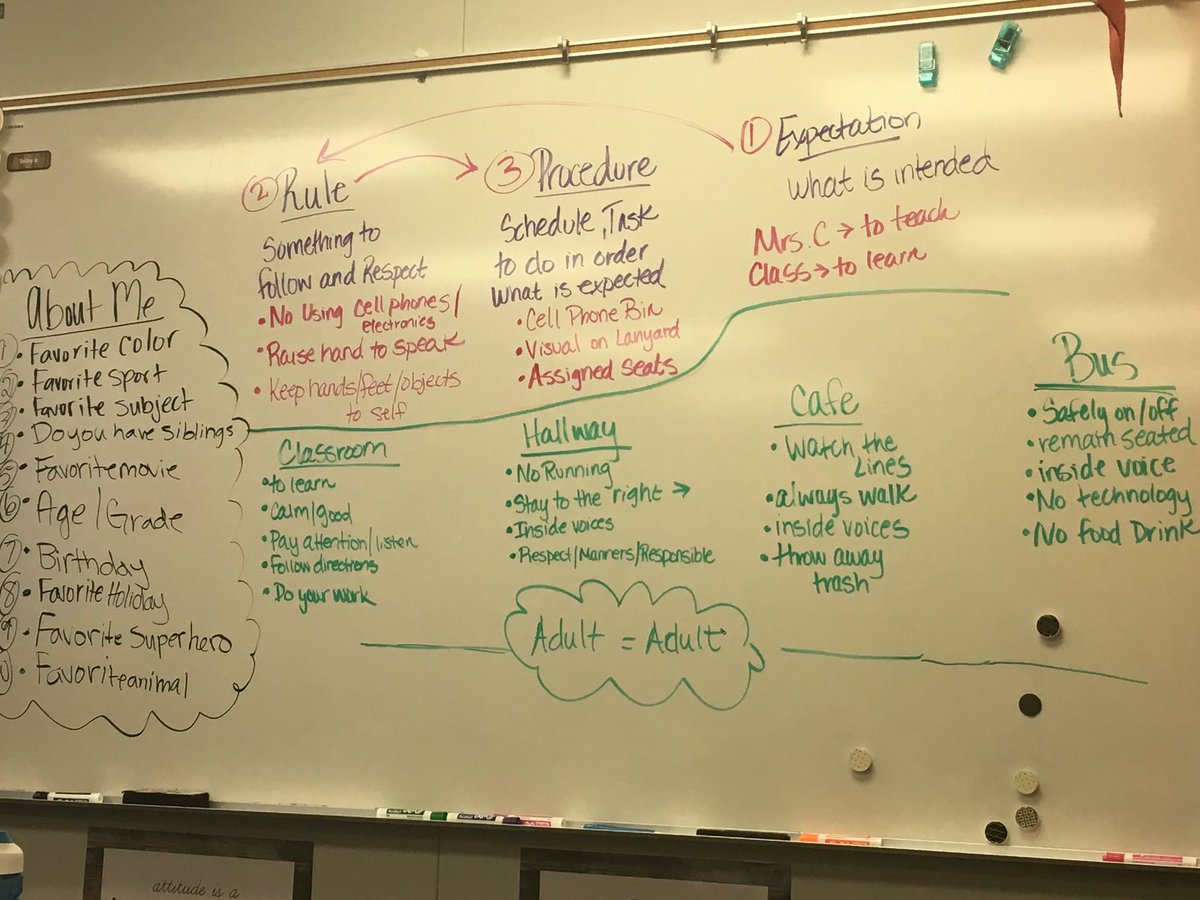 Today is
① Expectation
What is intended
Mrs. C → to teach
Class → to learn
② Rule
Something to
follow and Respect
• No Using Cell phones/
electronics
• Raise hand to speak
• Keep hands/feet/objects
to self
③ Procedure
Schedule, Task
to do in order
What is expected
• Cell Phone Bin
• Visual on Lanyard
• Assigned seats
About Me
① • Favorite Color
② • Favorite sport
③ • Favorite subject
④ • Do you have siblings
⑤ • Favorite movie
⑥ • Age/Grade
⑦ • Birthday
⑧ • Favorite Holiday
⑨ • Favorite Superhero
• Favorite animal
Classroom
• to learn
• Calm/good
• Pay attention/listen
• Follow directions
• Do your work
Hallway
• No Running
• Stay to the right →
• Inside voices
• Respect/Manners/Responsible
Cafe
• Watch the
Lines
• always walk
• inside voices
• throw away
trash
Bus
• Safely on/off
• remain seated
• inside voice
• No technology
• No food Drink
Adult = Adult
attitude is a